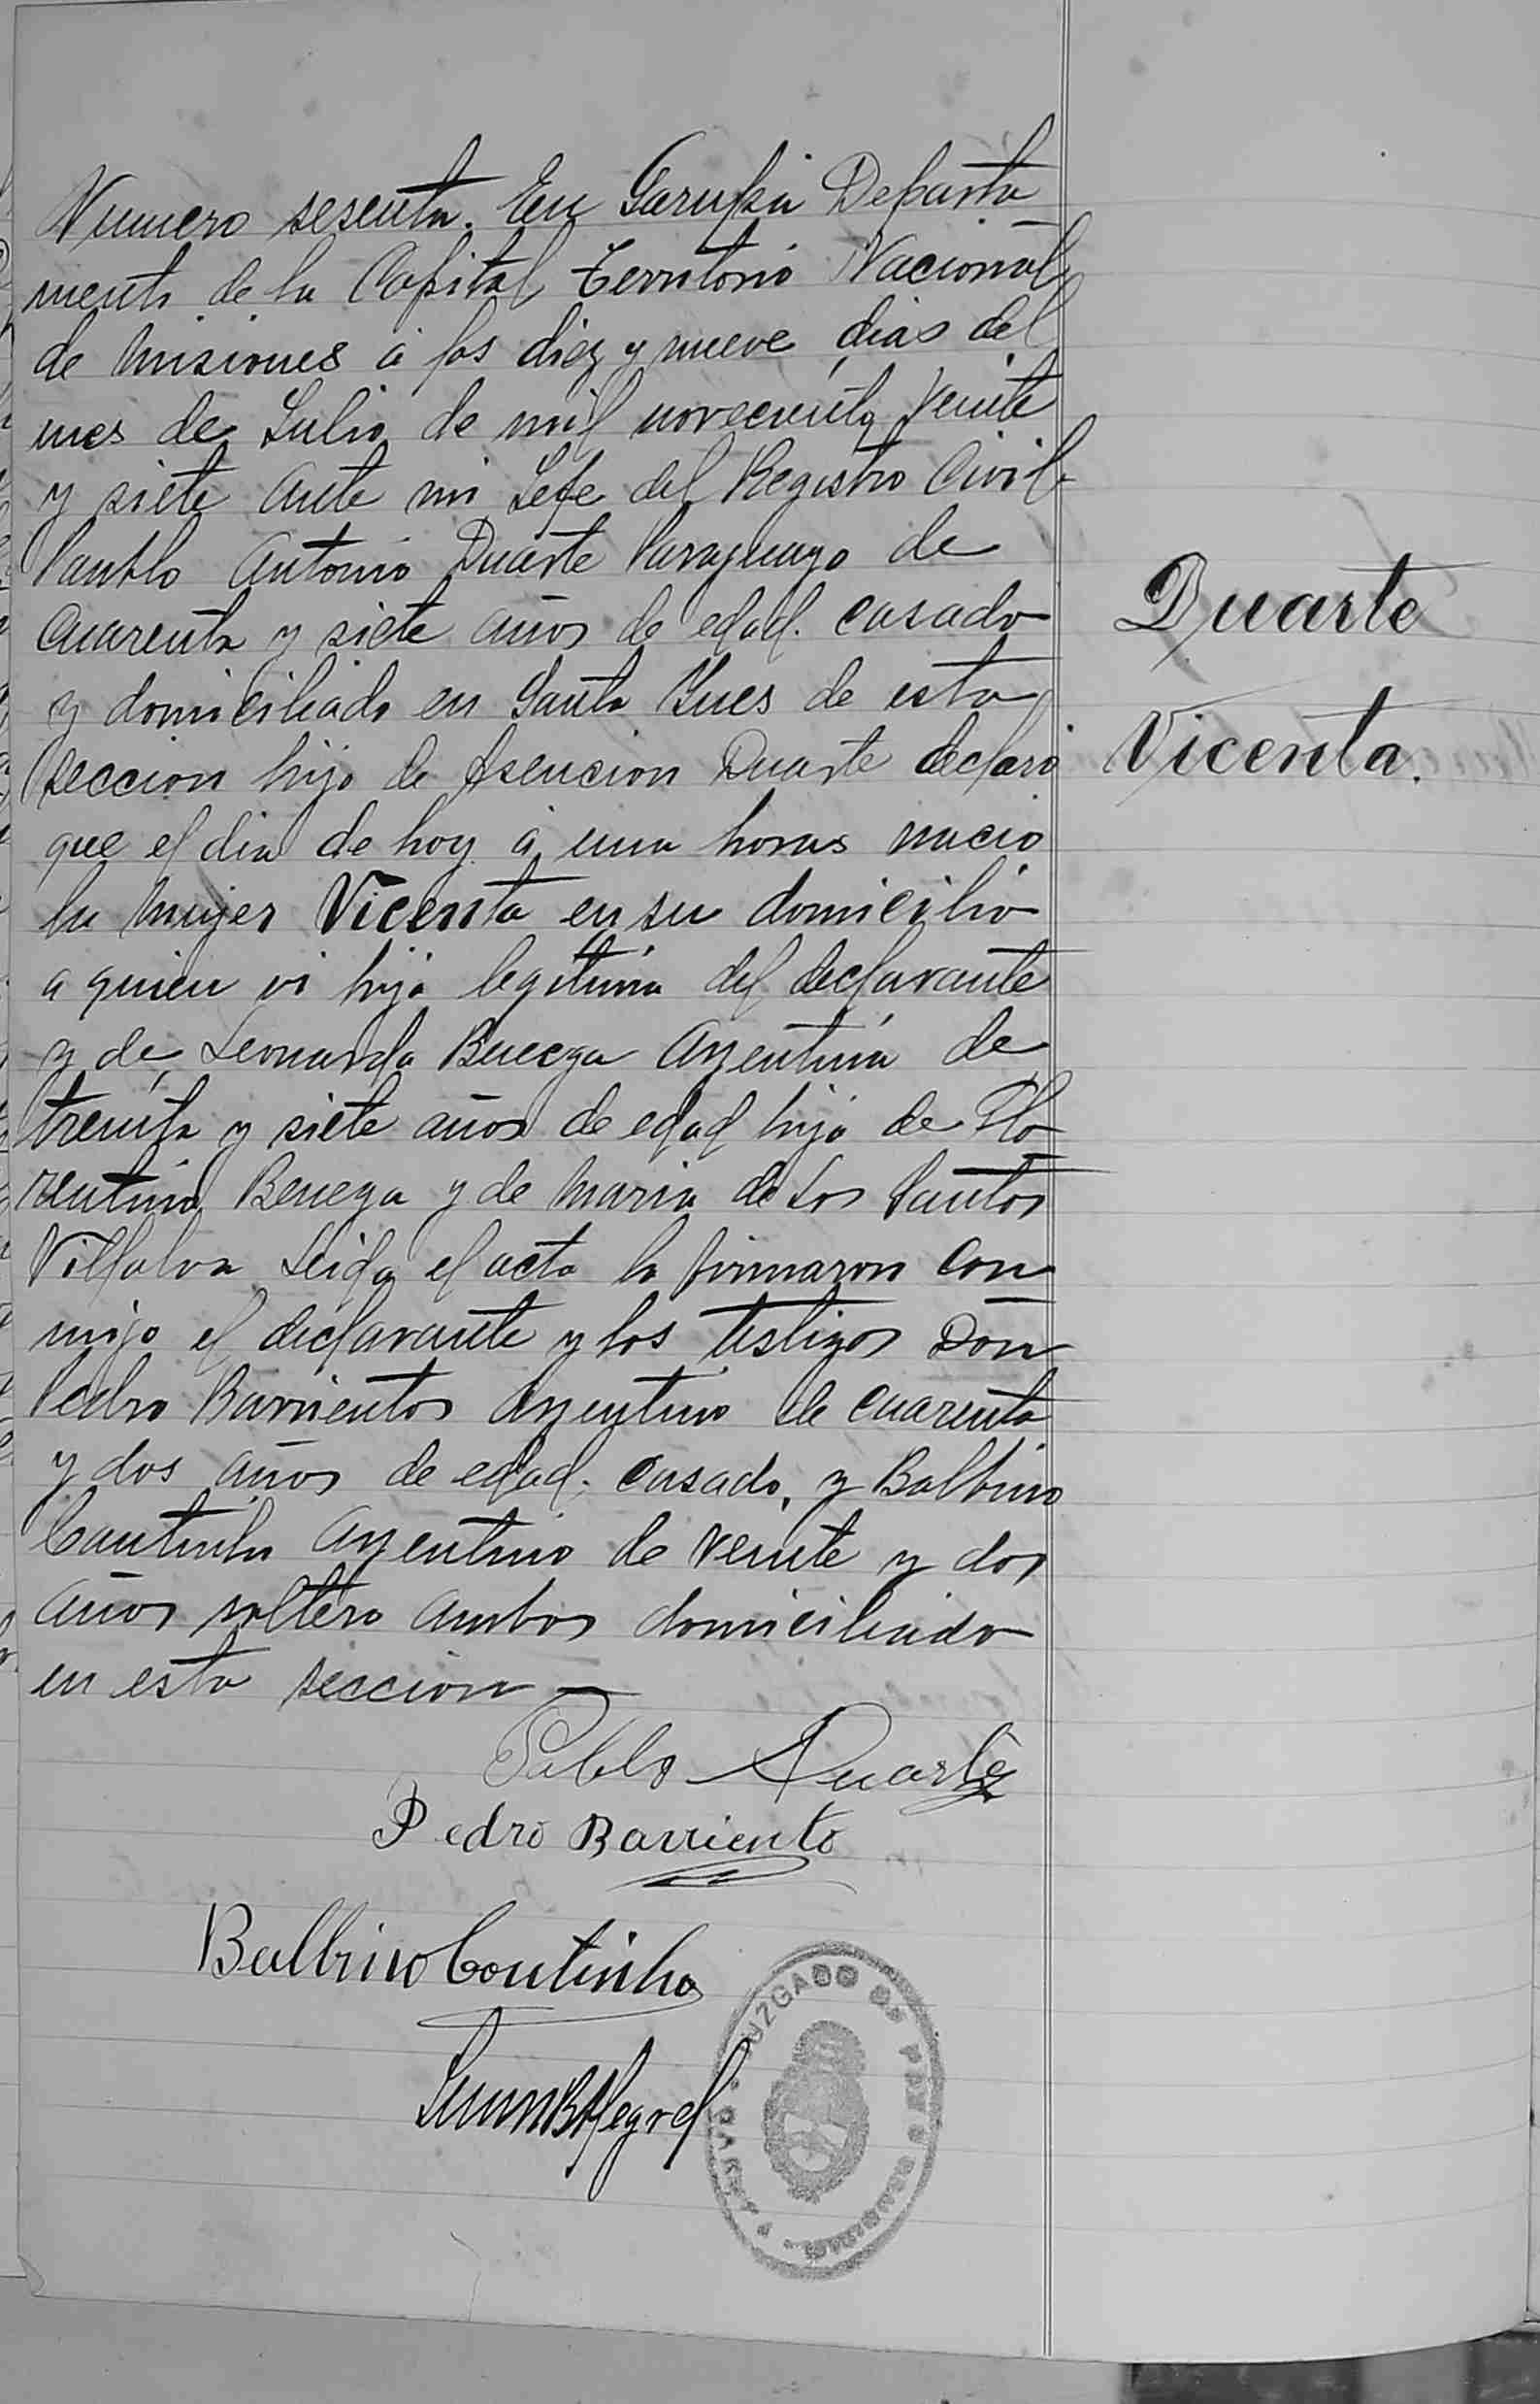 Numero sesenta. En Garupá Departa
mento de la Capital Territorio Nacional
de Misiones á los diez y nueve dias del
mes de Julio de mil novecientos veinte
y siete ante mi Jefe del Registro Civil
Pablo Antonio Duarte Paraguayo de
cuarenta y siete años de edad. casado
y domiciliado en Santa Ynes de esta
seccion hijo de Asencion Duarte declaró
que el dia de hoy á una horas nacio
la mujer Vicenta en su domicilio
a quien vi hija legitima del declarante
y de Leonarda Argentina de
treinta y siete años de edad hija de Flo
rentino Benega y de Maria de los Santos
Villalva Leida el acta la firmaron con
migo el declarante y los testigos Don
Pedro Barrientos Argentino de cuarenta
y dos años de edad. casado, y Balbino
Argentino de veinte y dos
años soltero ambos domiciliado
en esta seccion
Duarte
Vicenta.
Pablo Duarte
Pedro Barriento
Balbino Coutinho
JUZGADO DE PAZ